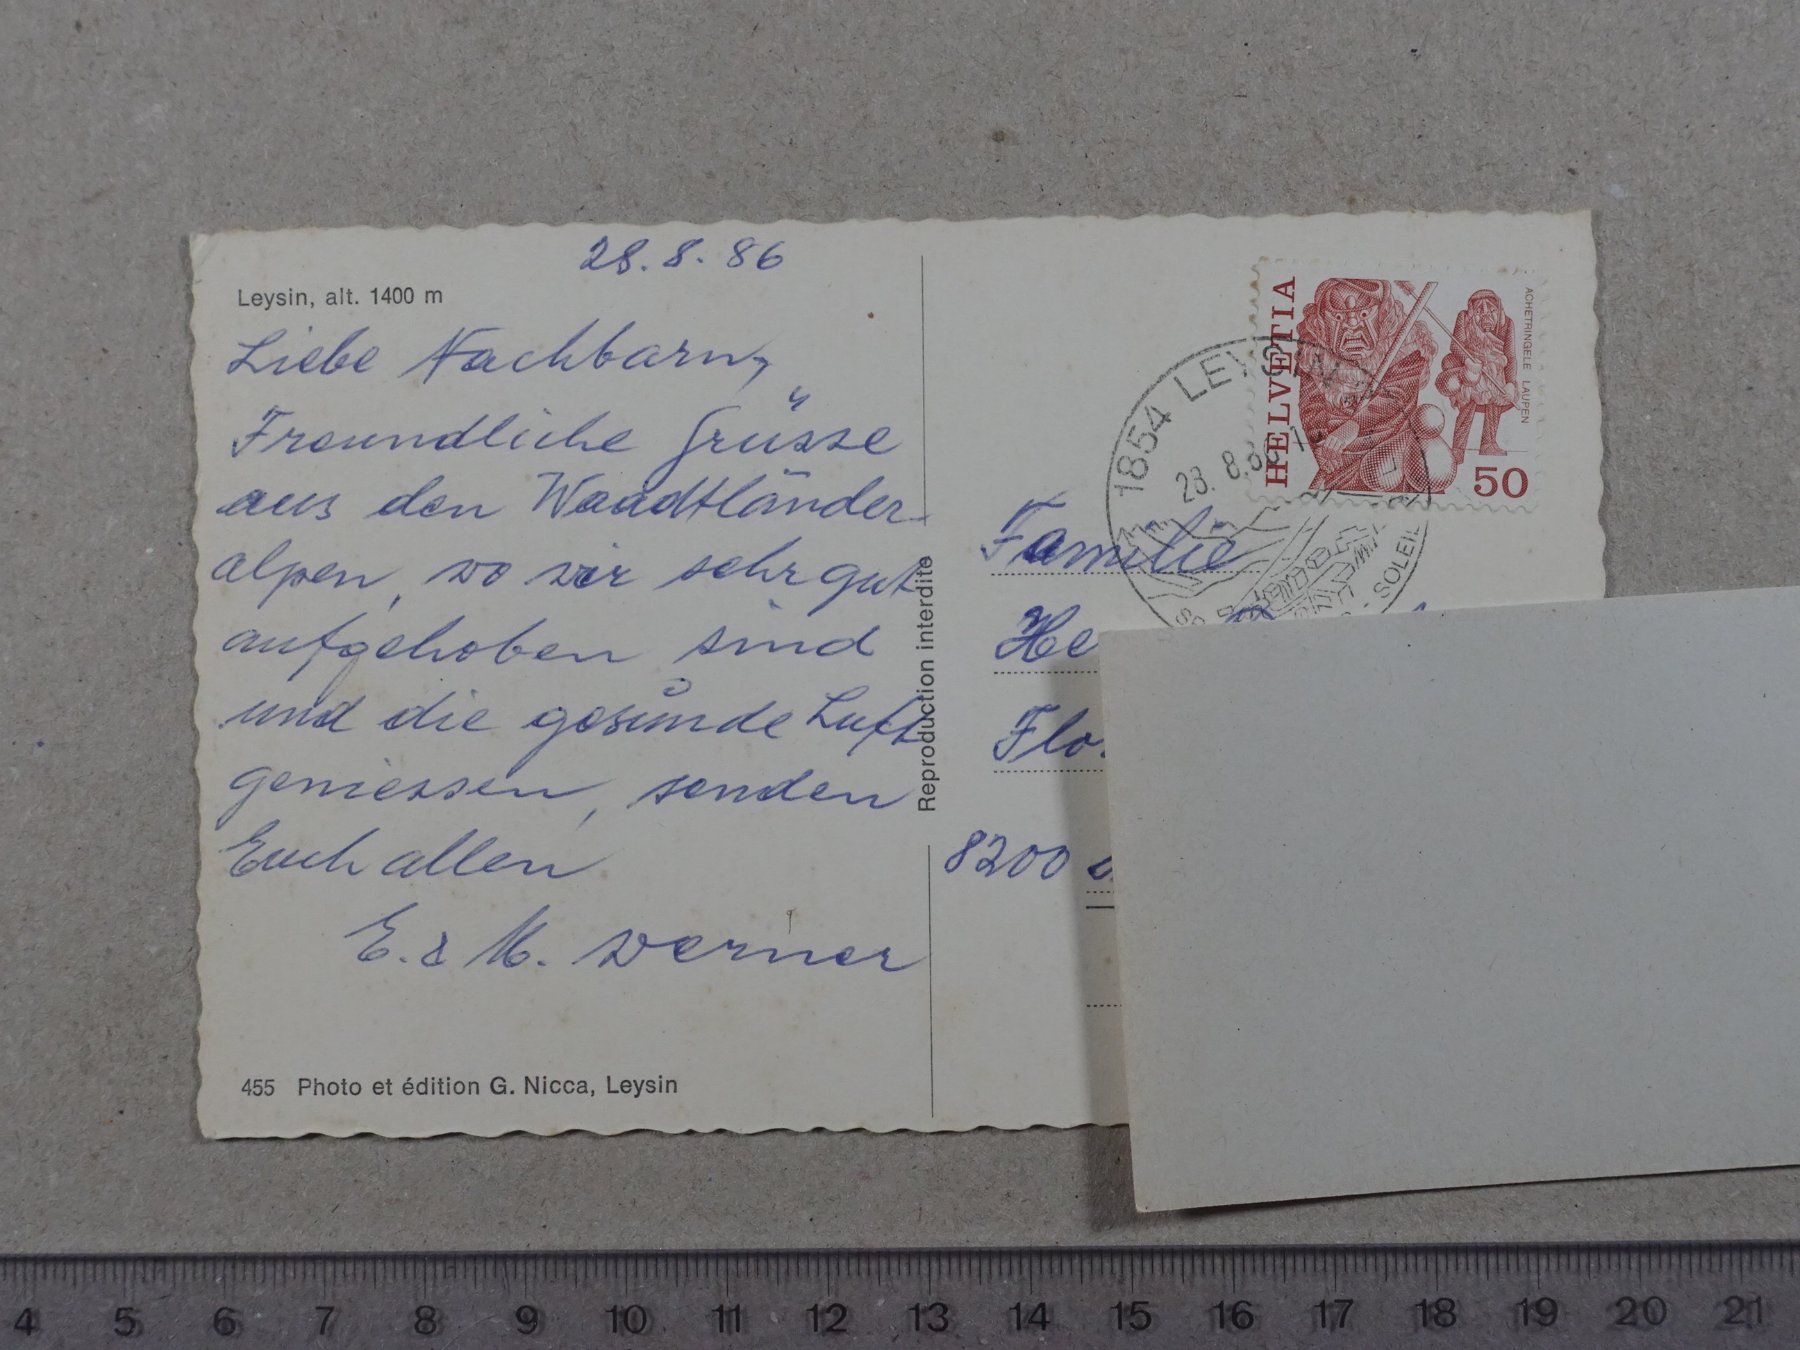 28.8.86
Leysin, alt. 1400 m
Liebe Nachbarn,
Freundliche Grüsse
aus den Waadtländer-
alpen, wo wir sehr gut
aufgehoben sind
und die gesunde Luft
geniessen, senden
Euch allen
E. & M. Werner
455 Photo et édition G. Nicca, Leysin
Reproduction interdite
HELVETIA
ACHETRINGELE LAUPEN
50
1854 LEYSIN
28. 8.86
SOLEIL
Familie
He
Flo
8200
4 5 6 7 8 9 10 11 12 13 14 15 16 17 18 19 20 21